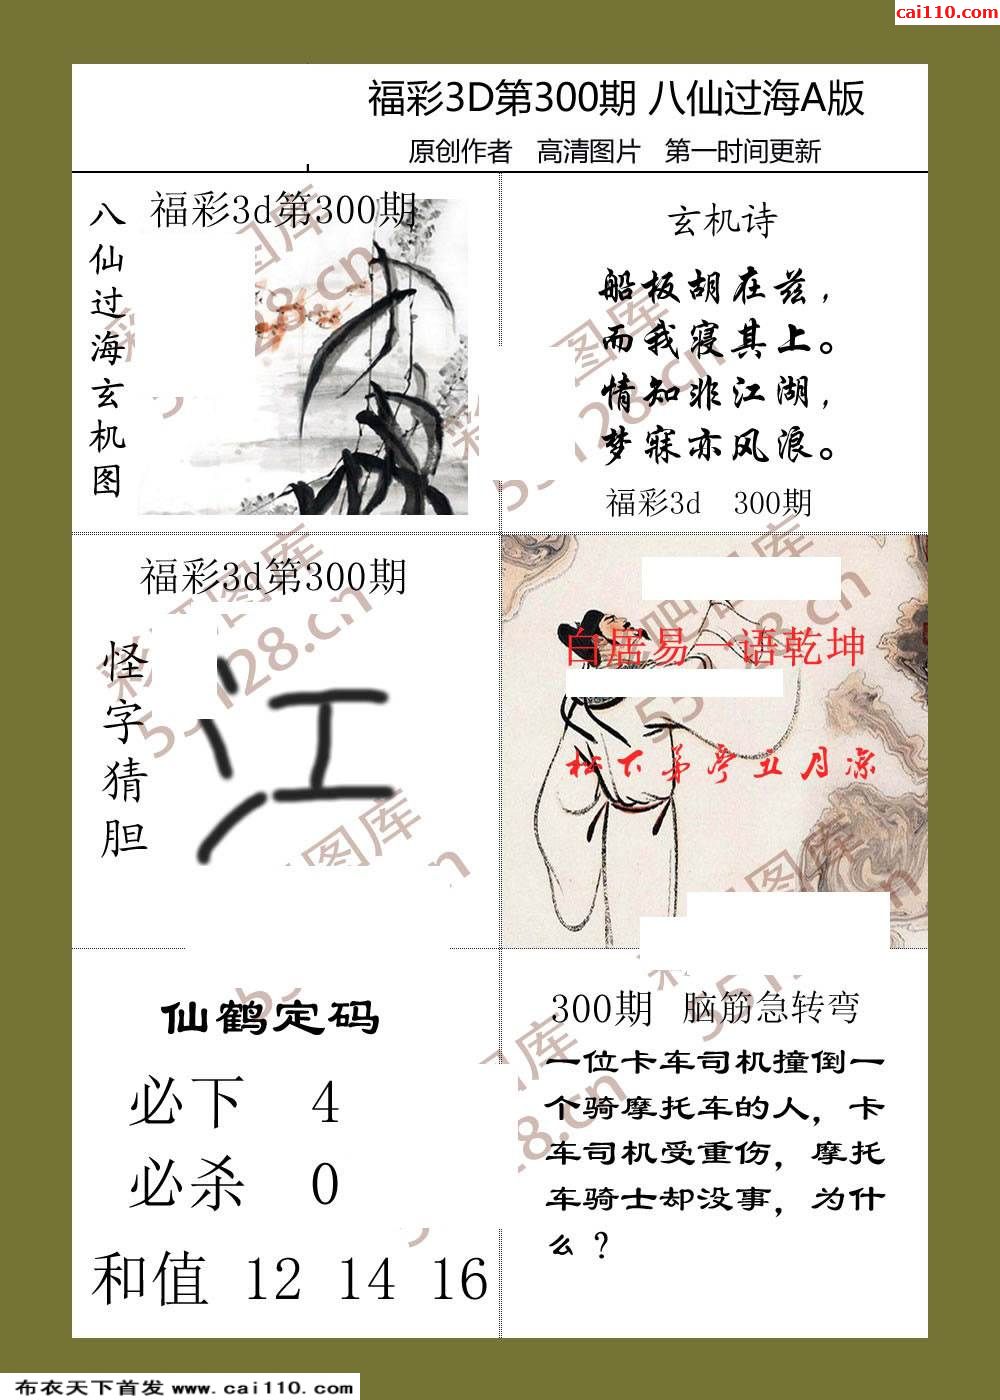 cai110.com
福彩3D第300期 八仙过海A版
原创作者 高清图片 第一时间更新
八仙过海玄机图
福彩3d第300期
玄机诗
船板胡在兹，
而我寝其上。
情知非江湖，
梦寐亦风浪。
福彩3d 300期
福彩3d第300期
怪字猜胆
江
白居易一语乾坤
松下茅亭五月凉
仙鹤定码
必下 4
必杀 0
和值 12 14 16
300期 脑筋急转弯
一位卡车司机撞倒一
个骑摩托车的人，卡
车司机受重伤，摩托
车骑士却没事，为什
么？
布衣天下首发 www.cai110.com